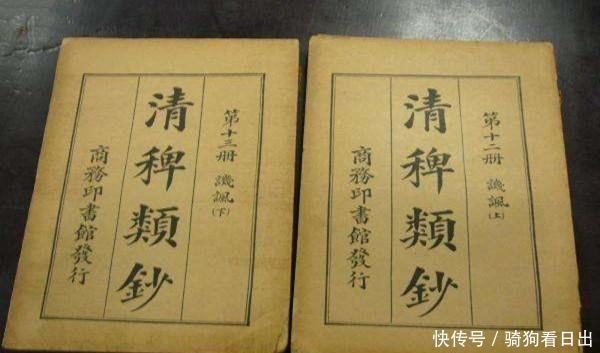 第十二册 譏諷(上)
清稗類鈔
商務印書館發行
第十三册 譏諷(下)
清稗類鈔
商務印書館發行
快传号/骑狗看日出